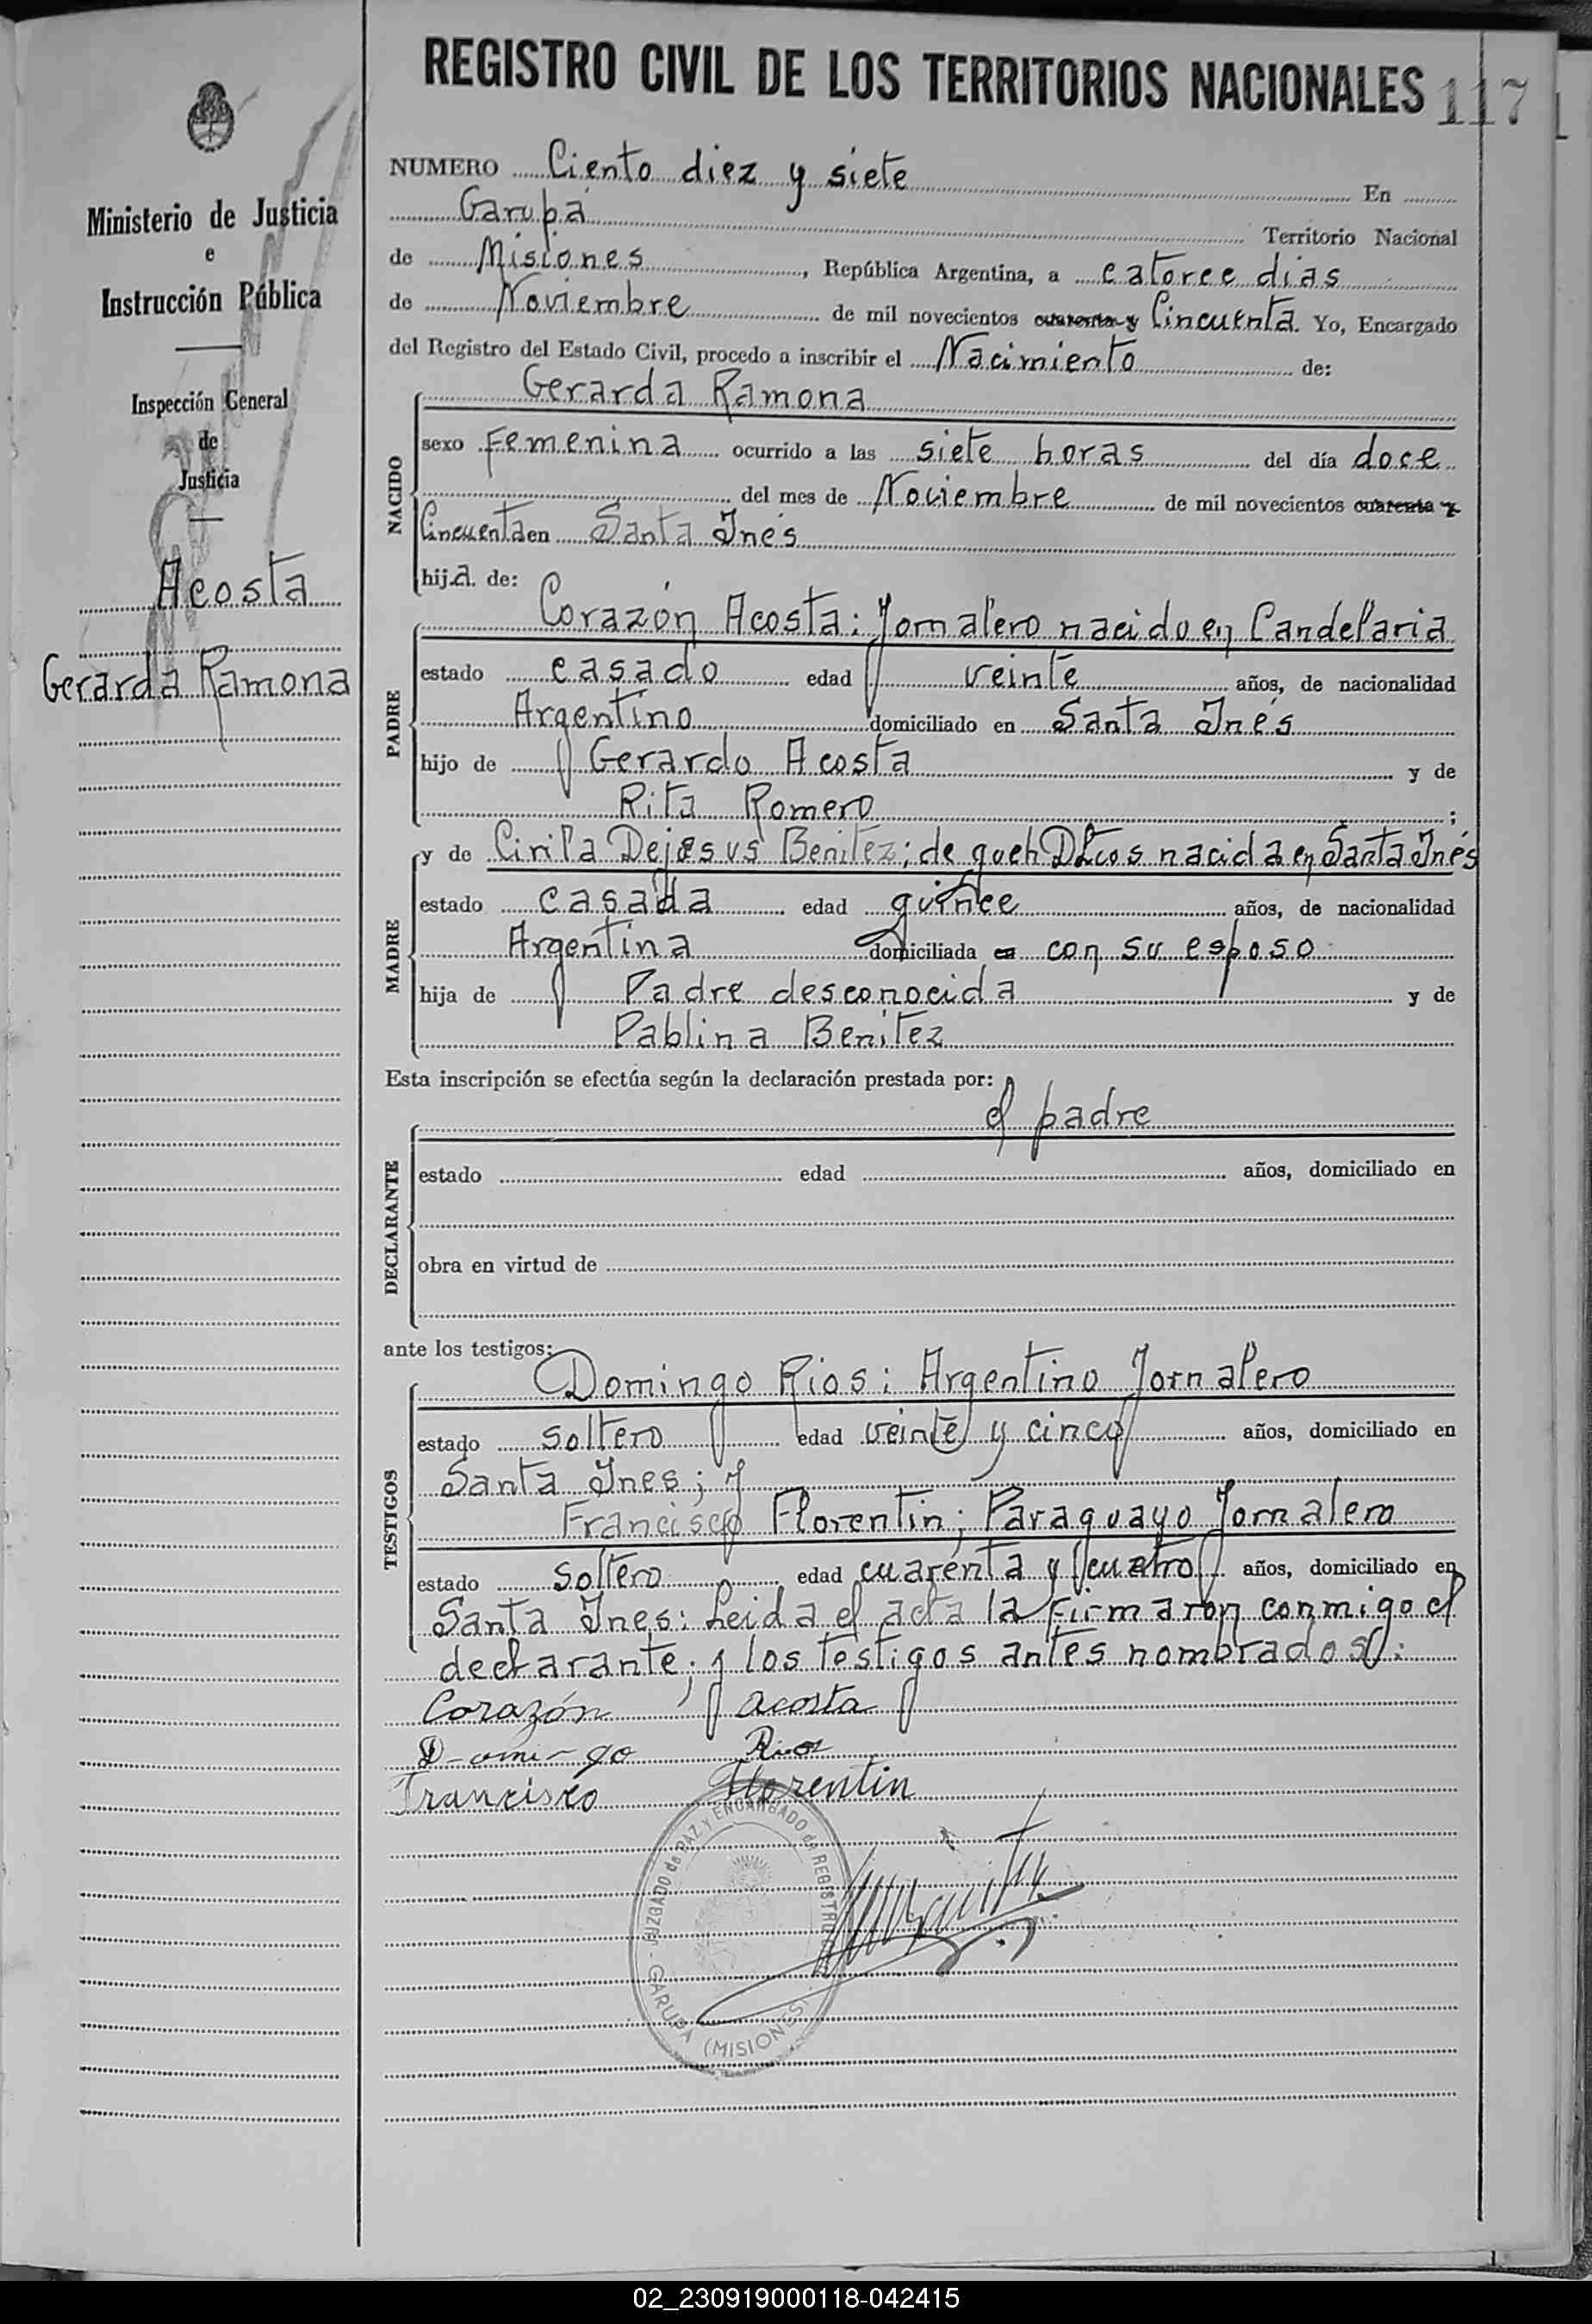 REGISTRO CIVIL DE LOS TERRITORIOS NACIONALES 117
Ministerio de Justicia
e
Instrucción Pública
Inspección General
de
Justicia
Acosta
Gerarda Ramona
NUMERO Ciento diez y siete En
Garupá Territorio Nacional
de Misiones, República Argentina, a catorce dias
de Noviembre de mil novecientos cuarenta y Cincuenta. Yo, Encargado
del Registro del Estado Civil, procedo a inscribir el Nacimiento de:
NACIDO
Gerarda Ramona
sexo Femenina ocurrido a las siete horas del día doce
del mes de Noviembre de mil novecientos cuarenta y
Cincuenta en Santa Inés
hija de:
PADRE
Corazón Acosta: Jornalero nacido en Candelaria
estado casado edad veinte años, de nacionalidad
Argentino domiciliado en Santa Inés
hijo de Gerardo Acosta y de
Rita Romero ;
MADRE
y de Cirila Dejesus Benitez; de nacida en Santa Inés
estado casada edad quince años, de nacionalidad
Argentina domiciliada en con su esposo
hija de Padre desconocida y de
Pablina Benitez
Esta inscripción se efectúa según la declaración prestada por:
DECLARANTE
el padre
estado edad años, domiciliado en
obra en virtud de
ante los testigos:
TESTIGOS
Domingo Rios: Argentino Jornalero
estado soltero edad veinte y cinco años, domiciliado en
Santa Ines; y
Francisco Florentin; Paraguayo Jornalero
estado soltero edad cuarenta y cuatro años, domiciliado en
Santa Ines: Leida el acta la firmaron conmigo el
declarante; y los testigos antes nombrados:
Corazón acosta
D-omi-go Rios
Francisco Florentin
JUZGADO de PAZ Y ENCARGADO de REGISTRO
GARUPA (MISIONES)
02_230919000118-042415